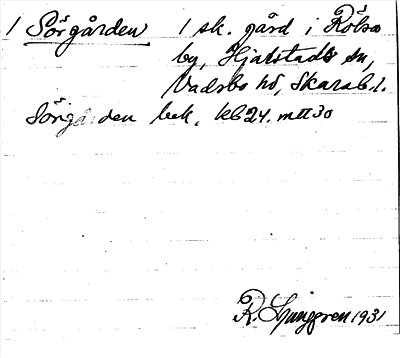 1 Sörgården 1 sk. gård i Rölsa
by, Hjälstads sn,
Vadsbo hd, Skarab. l.
Sörgården bek. kb 24. mtl 30
R. Ljunggren 1931